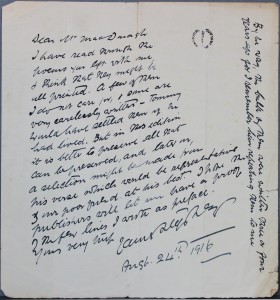 Dear Mr. MacDonagh
I have read through the
poems you left with me
& think that they might be
all printed. A few of them
I do not care for, & some are
very carelessly written - Tommy
would have settled them if he
had lived. But in this edition
it is better to preserve all that
can be preserved, and later on,
a selection might be made from
his verse which would be representative
of our poor friend at his best. I hope the
publishers will let me have a proof
of the few lines I wrote as preface.
Yours very truly
James Stephens
Augt. 24th 1916
By the way, the bulk of them were written three or four
years ago for I remember him repeating them to me